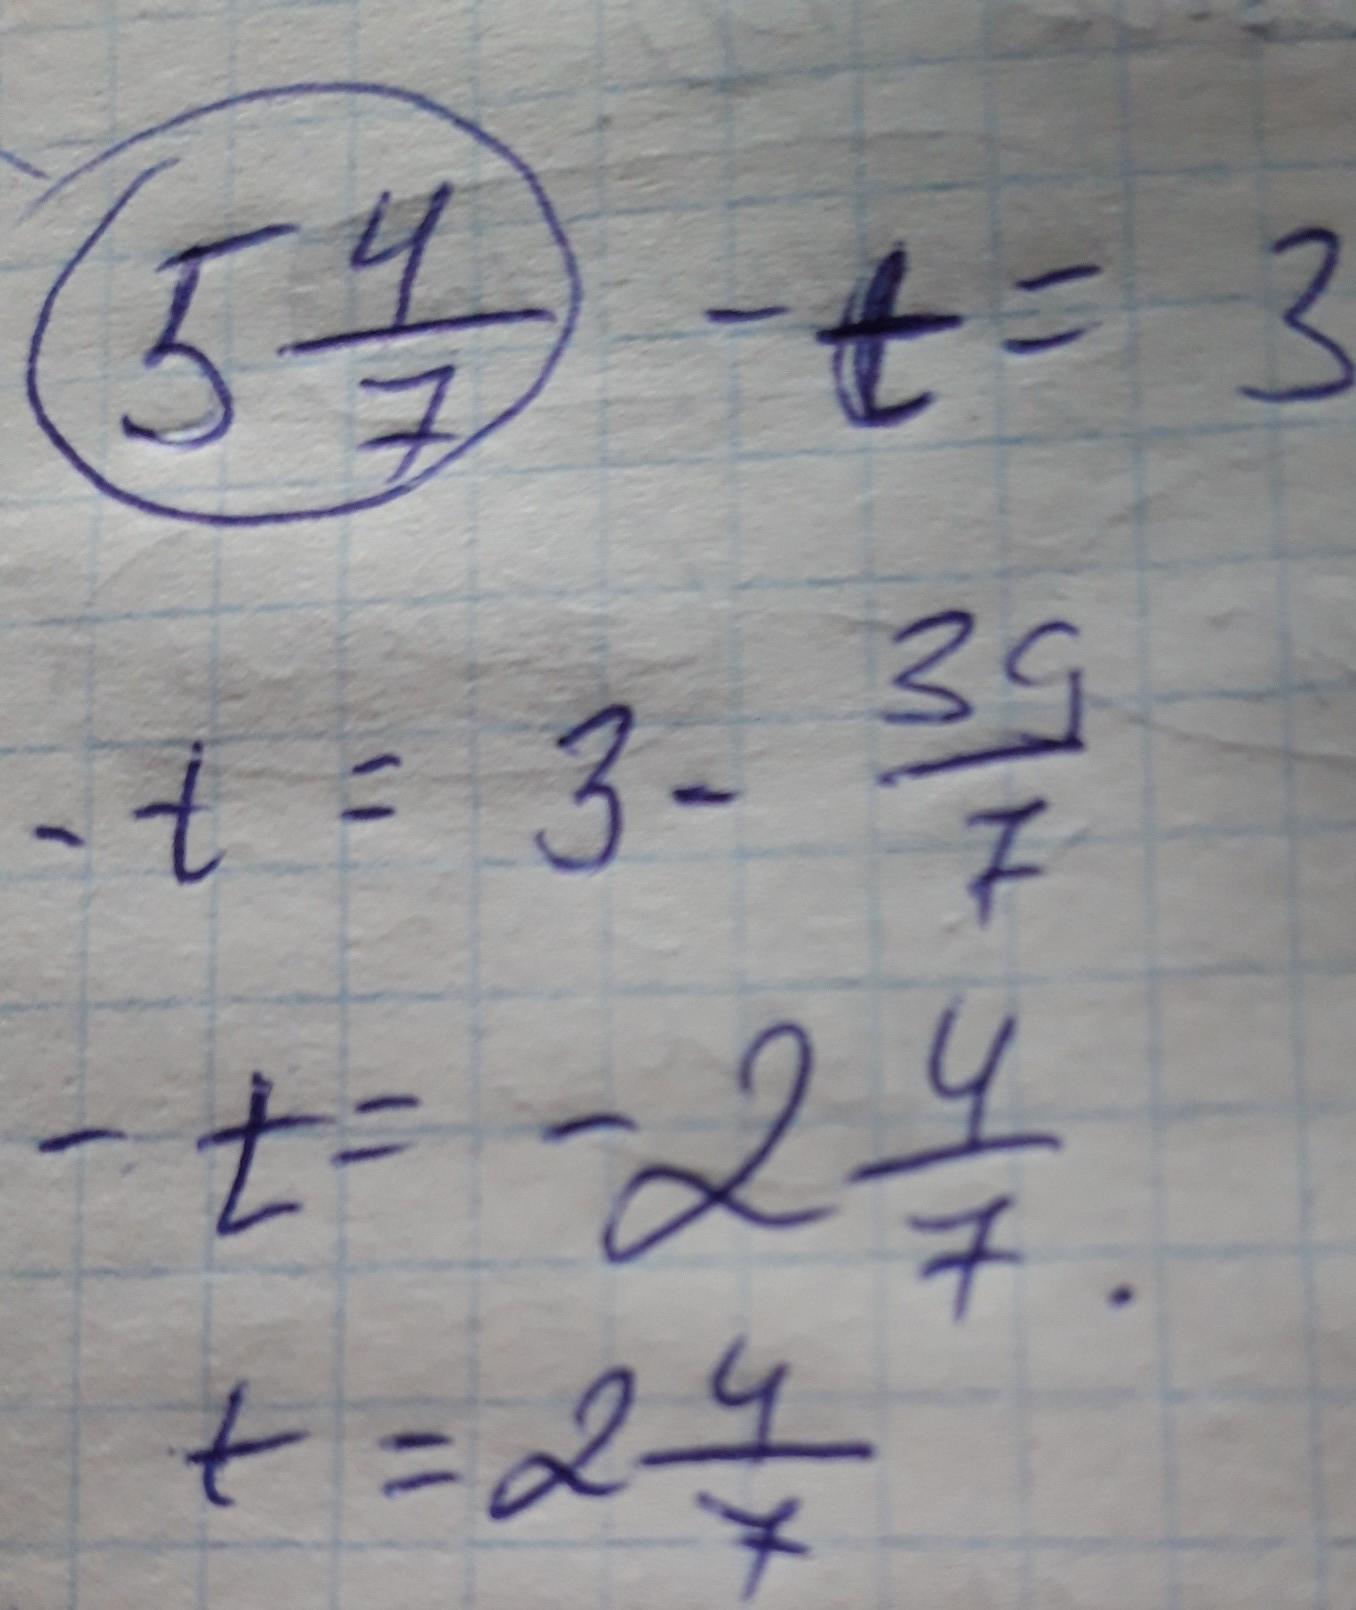 5 4/7 - t = 3
- t = 3 - 39/7
- t = - 2 4/7 .
t = 2 4/7